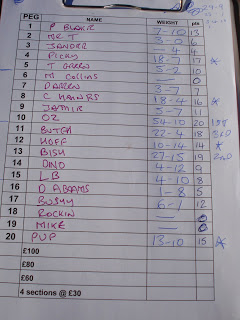 PEG NAME WEIGHT pts
1 P BLAKE 7-10 13
2 MR T 3-0 6
3 SANDER - 4 4
4 PICKY 18-7 17 *
5 T GREEN 5-2 10
6 M COLLINS - 0
7 DARREN 3-7 7
8 C HAINRS 18-4 16 *
9 JAYMIR 5-7 11
10 OZ 54-10 20 1ST
11 BUTCH 22-4 18 3RD
12 HOFF 10-14 14 *
13 BISH 27-15 19 2ND
14 DINO 4-12 9
15 LB 4-10 8
16 D ABBAMS 1-8 5
17 BUSHY 6-1 12
18 ROCKIN - 0
19 MIKE - 0
20 PUP 13-10 15 *
£100
£80
£60
4 sections @ £30